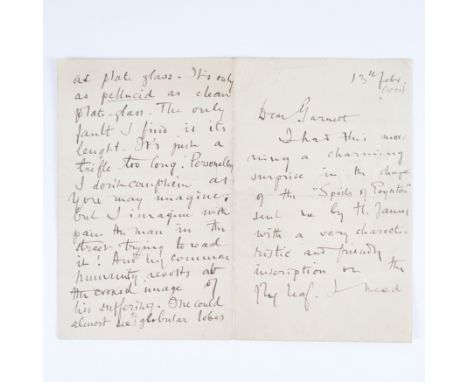 13th febr.
Dear Garnett
I had this mor-
ning a charming
surprise in the shape
of the "Spoils of Poynton"
sent me by H. James
with a very characte-
ristic and friendly
inscription on the
fly leaf. I need
as plate glass. It's only
as pellucid as clean
plate-glass. The only
fault I find is its
lenght. It's just a
trifle too long. Personally
I don't complain as
you may imagine;
but I imagine with
pain the man in the
street trying to read
it! And my common
humanity revolts at
the evoked image of
his suffering. One could
almost see the globular lobes